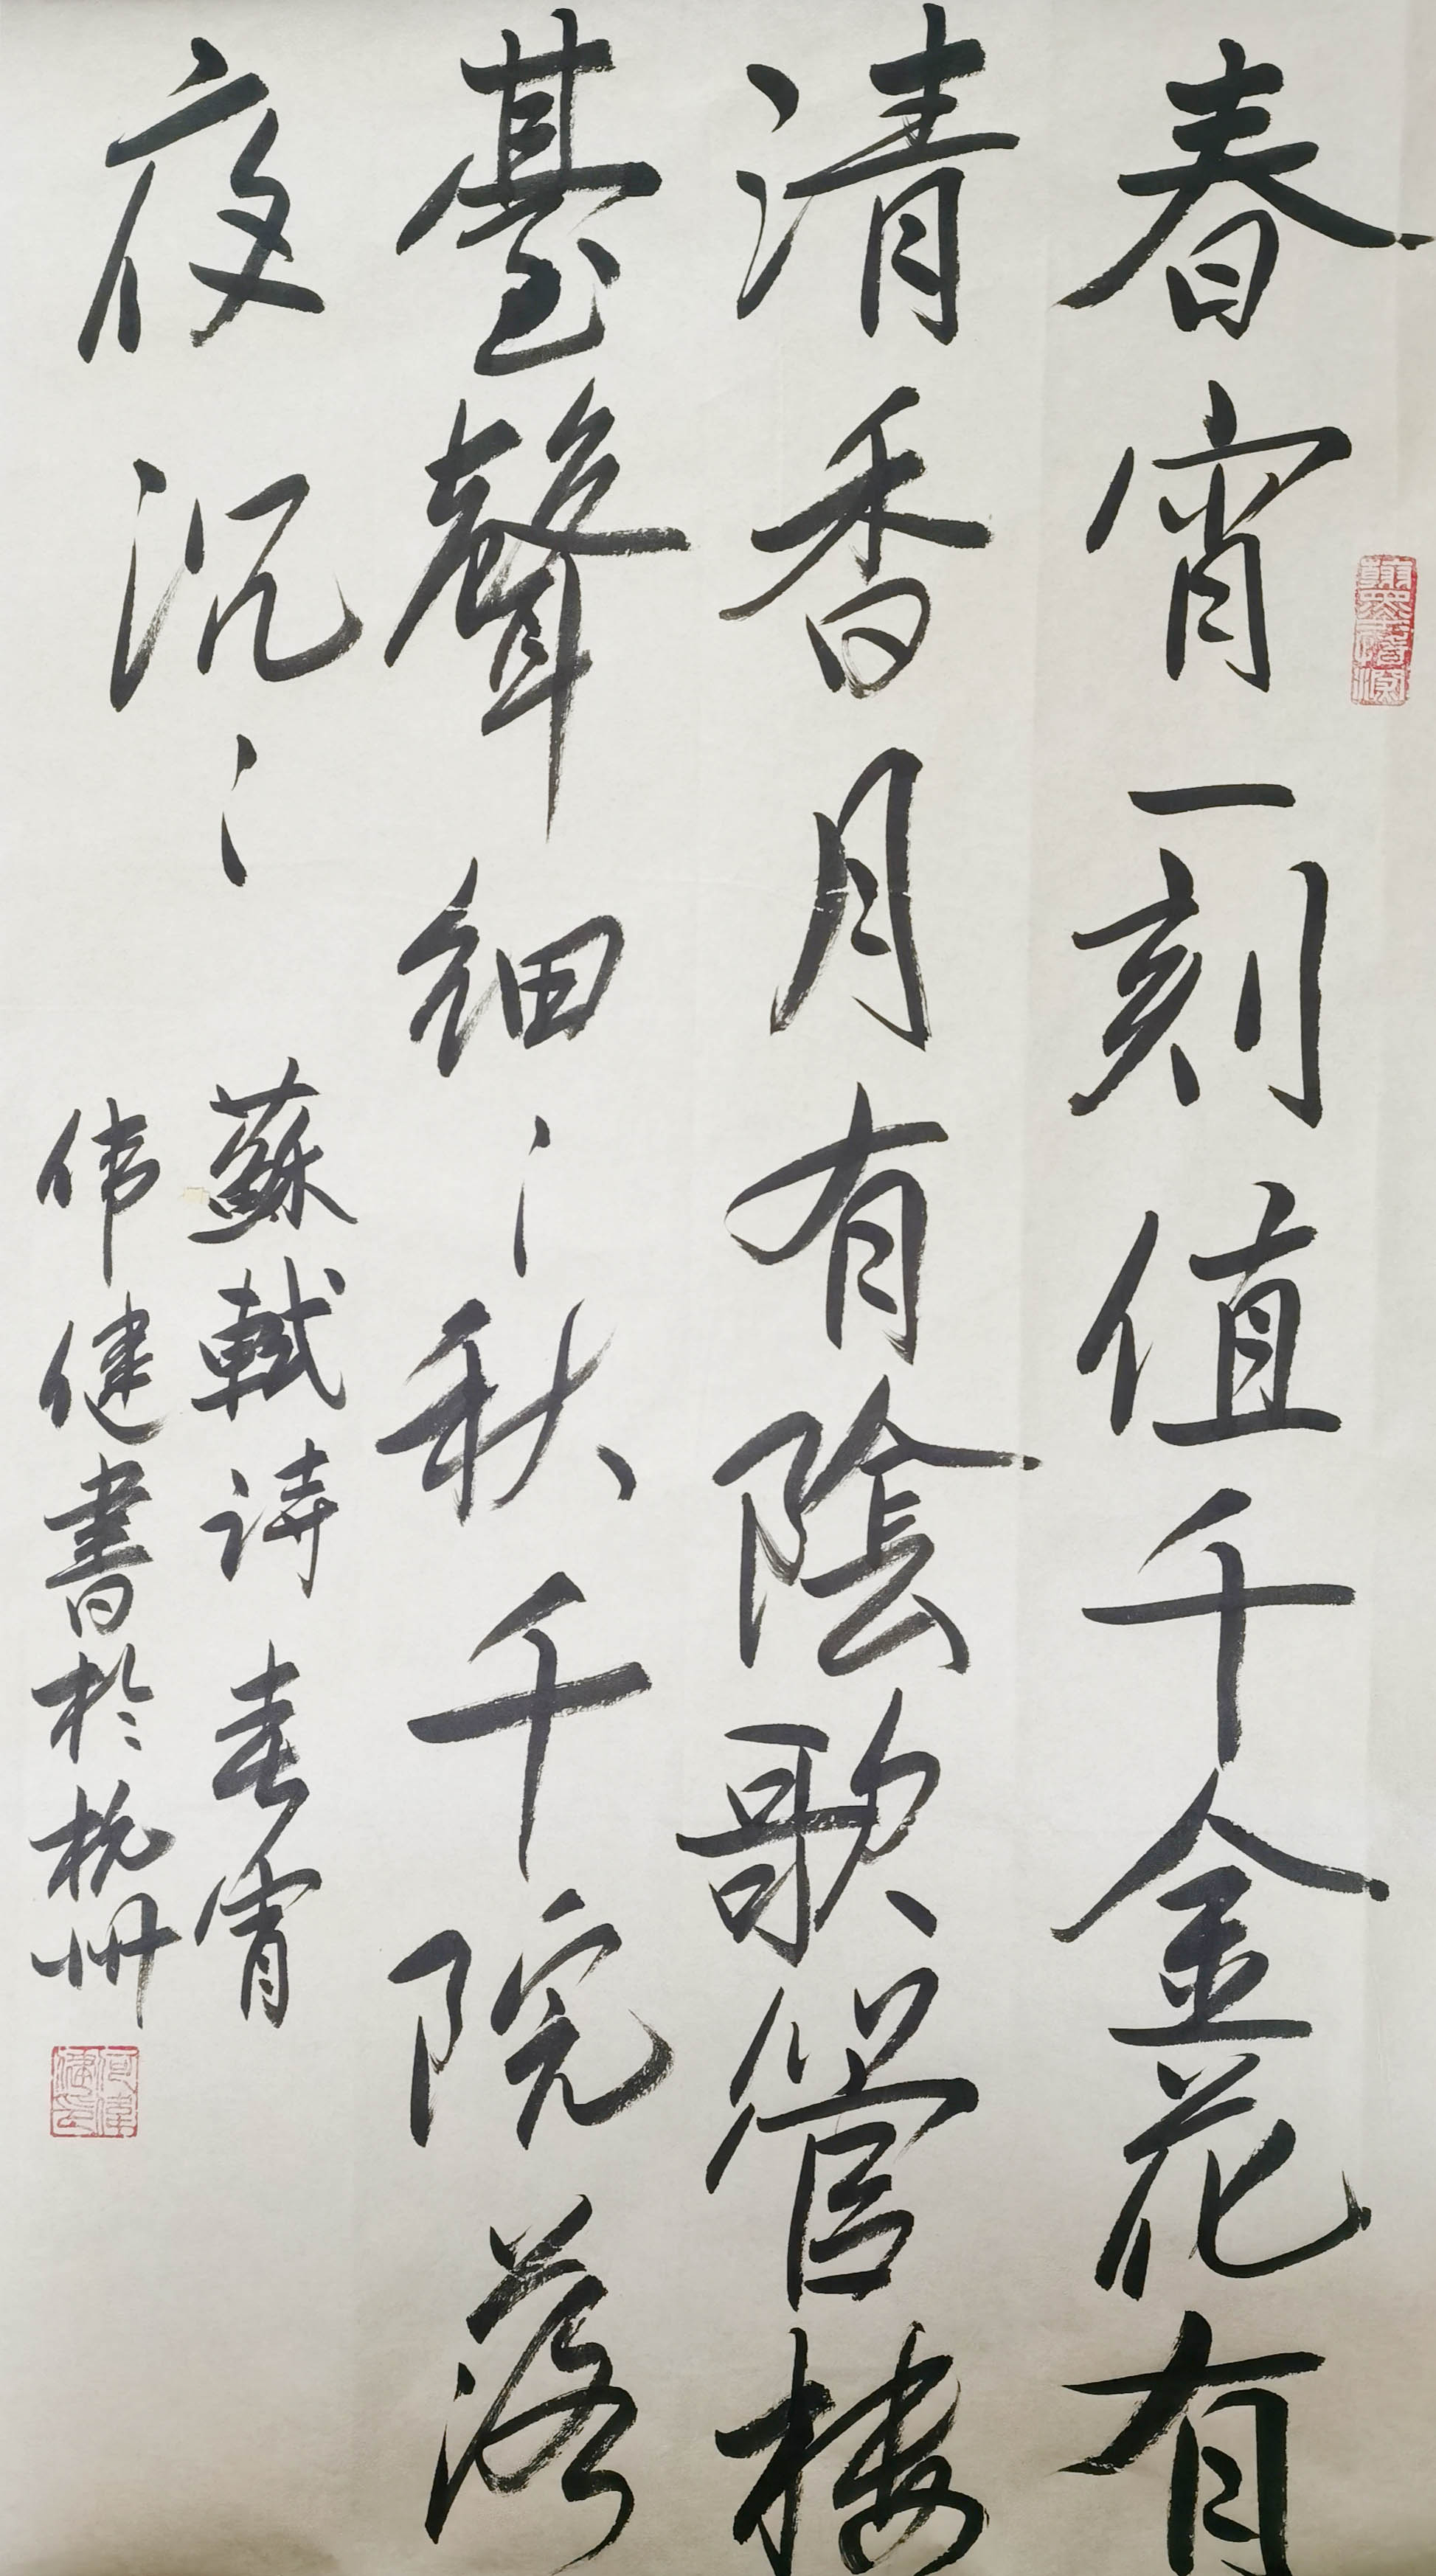 春宵一刻值千金花有
清香月有陰歌管樓
臺聲細〻秋千院落
夜沉〻
蘇軾詩春宵
伟健書於杭州